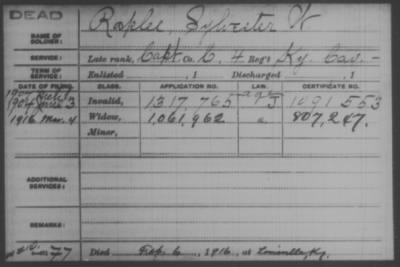 DEAD
NAME OF SOLDIER: Raplee, Sylvester W
SERVICE: Late rank, Capt Co. C, 4 Reg't Ky. Cav.
TERM OF SERVICE: Enlisted , 1 Discharged , 1
DATE OF FILING. CLASS. APPLICATION NO. LAW. CERTIFICATE NO.
Invalid, 1317,765 J 1091553
1916 Mar. 4 Widow, 1,061,962 " 807,247.
Minor,
ADDITIONAL SERVICES:
REMARKS:
Died Feb. 6, 1916, at Louisville, Ky.